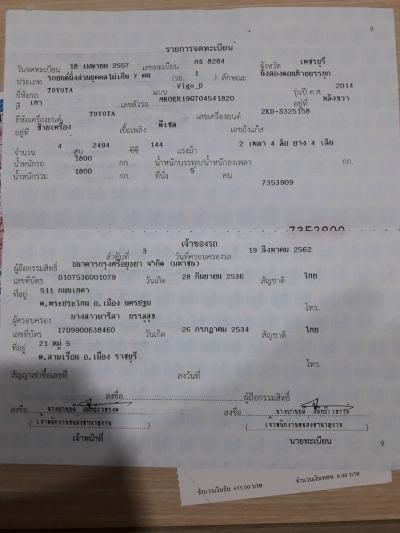 8
รายการจดทะเบียน
วันจดทะเบียน 18 เมษายน 2557 เลขทะเบียน กธ 8284 จังหวัด เพชรบุรี
ประเภท รถยนต์นั่งส่วนบุคคลไม่เกิน 7 คน (รย. 1 ) ลักษณะ
ยี่ห้อรถ TOYOTA แบบ Vigo_D รุ่นปี ค.ศ. 2014
สี เทา เลขตัวรถ MR0ER19G704541820 อยู่ที่
ยี่ห้อเครื่องยนต์ TOYOTA เลขเครื่องยนต์ 2KD-S325158
อยู่ที่ ซ้ายเครื่อง เชื้อเพลิง ดีเซล เลขถังแก๊ส
จำนวน 4 สูบ 2494 ซีซี 144 แรงม้า 2 เพลา 4 ล้อ ยาง 4 เส้น
น้ำหนักรถ 1800 กก. น้ำหนักบรรทุก/น้ำหนักลงเพลา กก.
น้ำหนักรวม 1800 กก. ที่นั่ง 5 คน
7353909
7353909
เจ้าของรถ
ลำดับที่ 3 วันที่ครอบครองรถ 19 สิงหาคม 2562
ผู้ถือกรรมสิทธิ์ ธนาคารกรุงศรีอยุธยา จำกัด (มหาชน)
เลขที่บัตร 0107536001079 วันเกิด 28 กันยายน 2536 สัญชาติ ไทย
ที่อยู่ 511 ถนนเทศา
ต.พระประโทน อ.เมือง นครปฐม โทร.
ผู้ครอบครอง นางสาวมาริสา
เลขที่บัตร 1709900638460 วันเกิด 26 กรกฎาคม 2534 สัญชาติ ไทย
ที่อยู่ 21 หมู่ 5
ต.สามเรือน อ.เมือง ราชบุรี โทร.
สัญญาเช่าซื้อเลขที่ ลงวันที่
ลงชื่อ ผู้ถือกรรมสิทธิ์
ลงชื่อ ลงชื่อ
(เจ้าพนักงานขนส่งชำนาญงาน) (เจ้าพนักงานขนส่งชำนาญงาน)
เจ้าหน้าที่ นายทะเบียน
9
จำนวนเงินรับ 655.00 บาท จำนวนเงินทอน 0.00 บาท